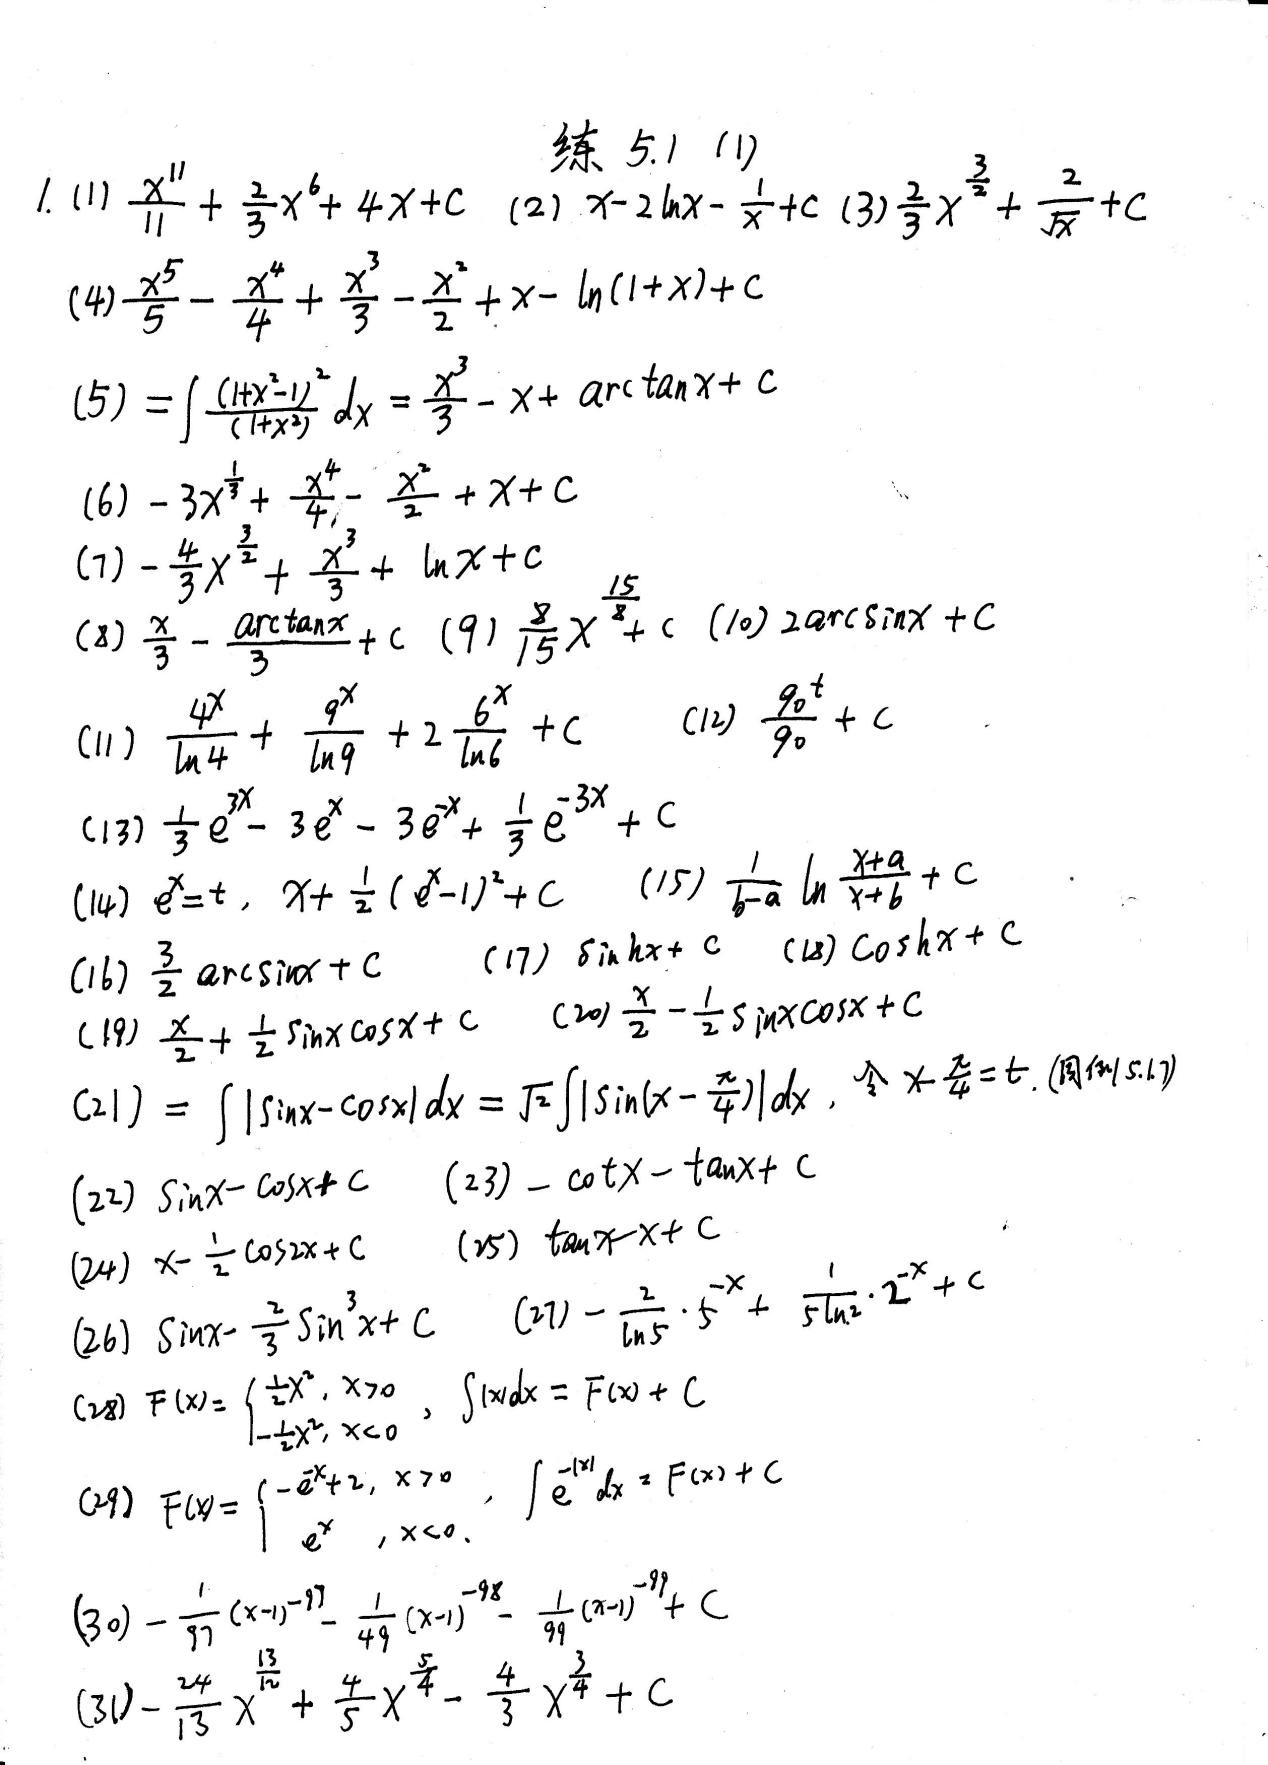 练 5.1 (1)
1. (1) x^11/11 + 2/3 x^6 + 4x+C (2) x-2lnx-1/x+C (3) 2/3 x^(3/2) + 2/√x +C
(4) x^5/5 - x^4/4 + x^3/3 - x^2/2 + x- ln(1+x)+C
(5) = ∫ (1+x^2-1)^2/(1+x^2) dx = x^3/3 - x+ arctanx+ C
(6) -3x^(1/3) + x^4/4 - x^2/2 + x+C
(7) -4/3 x^(3/2) + x^3/3 + lnx+C
(8) x/3 - arctanx/3 +C (9) 8/15 x^(15/8) + C (10) 2arcsinx +C
(11) 4^x/ln4 + 9^x/ln9 +2 6^x/ln6 +C (12) 90^t/90 + C
(13) 1/3 e^3x - 3e^x - 3e^-x + 1/3 e^-3x + C
(14) e^x=t, x+ 1/2 (e^x-1)^2+C (15) 1/(b-a) ln (x+a)/(x+b) + C
(16) 3/2 arcsinx + C (17) sinhx+ C (18) coshx+ C
(19) x/2 + 1/2 sinxcosx+ C (20) x/2 - 1/2 sinxcosx+C
(21) = ∫|sinx-cosx|dx = √2∫|sin(x-π/4)|dx, 令 x-π/4=t. (同例5.1.7)
(22) sinx-cosx+C (23) - cotx - tanx+ C
(24) x-1/2 cos2x+C (25) tanx-x+ C
(26) sinx- 2/3 sin^3x+ C (27) - 2/ln5 · 5^-x + 1/(5ln2) · 2^-x + C
(28) F(x)= { 1/2 x^2, x>0
-1/2 x^2, x<0 , ∫|x|dx = F(x) + C
(29) F(x)= { -e^-x+2, x>0
e^x , x<0. , ∫e^-|x| dx = F(x)+C
(30) - 1/97 (x-1)^-97 - 1/49 (x-1)^-98 - 1/99 (x-1)^-99 + C
(31) - 24/13 x^(13/12) + 4/5 x^(5/4) - 4/3 x^(3/4) + C